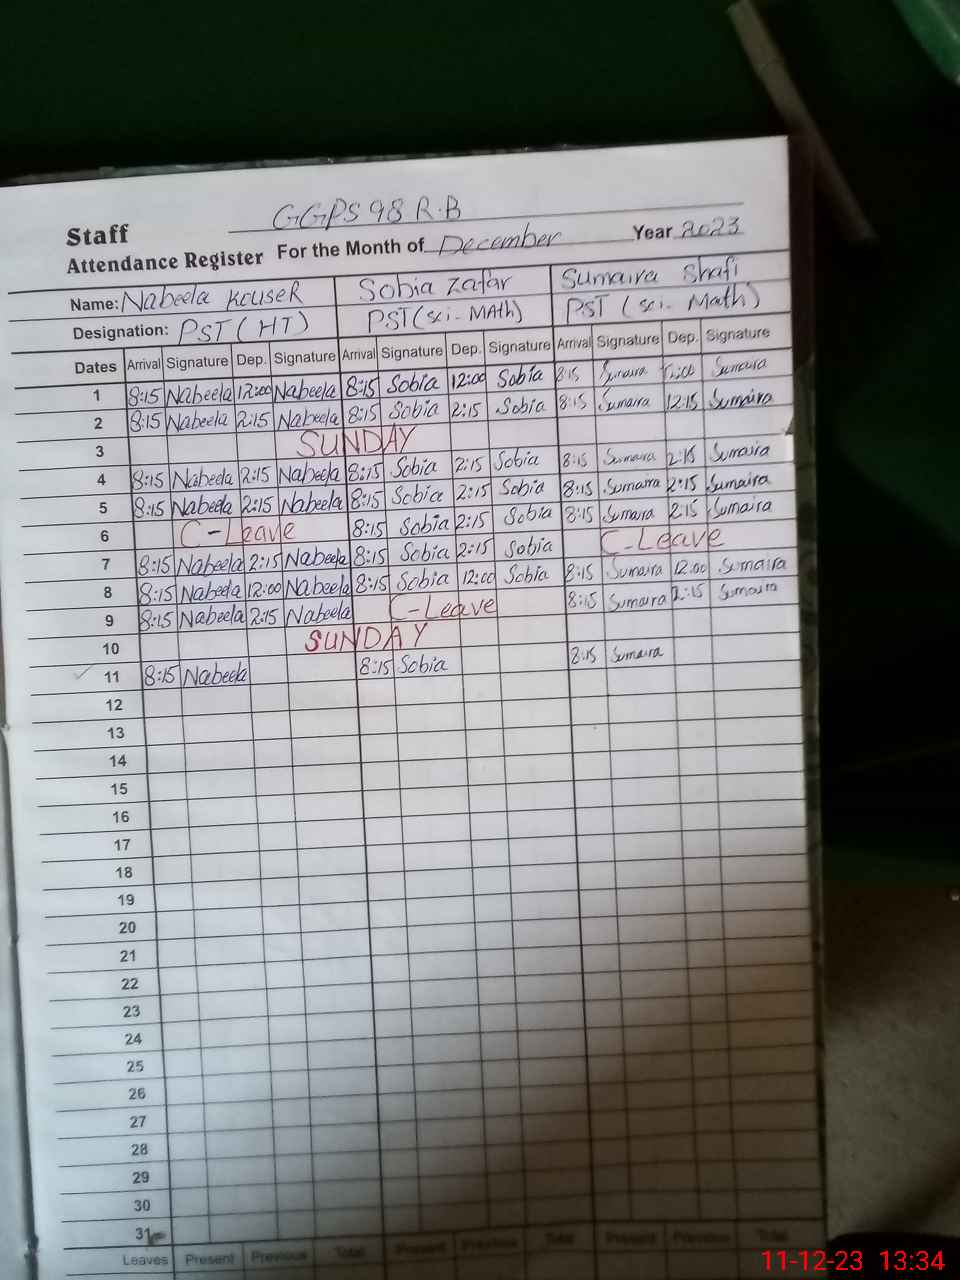 GGPS 98 R.B
Staff
Attendance Register For the Month of December Year 2023
Name: Nabeela kouseR Sobia Zafar Sumaira Shafi
Designation: PST (HT) PST (sci- MAth) PST (sci- Math)
Dates Arrival Signature Dep. Signature Arrival Signature Dep. Signature Arrival Signature Dep. Signature
1 8:15 Nabeela 12:00 Nabeela 8:15 Sobia 12:00 Sobia 8:15 Sumaira 12:00 Sumaira
2 8:15 Nabeela 2:15 Nabeela 8:15 Sobia 2:15 Sobia 8:15 Sumaira 12:15 Sumaira
3 SUNDAY
4 8:15 Nabeela 2:15 Nabeela 8:15 Sobia 2:15 Sobia 8:15 Sumaira 2:15 Sumaira
5 8:15 Nabeela 2:15 Nabeela 8:15 Sobia 2:15 Sobia 8:15 Sumaira 2:15 Sumaira
6 C-Leave 8:15 Sobia 2:15 Sobia 8:15 Sumaira 2:15 Sumaira
7 8:15 Nabeela 2:15 Nabeela 8:15 Sobia 2:15 Sobia C-Leave
8 8:15 Nabeela 12:00 Nabeela 8:15 Sobia 12:00 Sobia 8:15 Sumaira 12:00 Sumaira
9 8:15 Nabeela 2:15 Nabeela C-Leave 8:15 Sumaira 2:15 Sumaira
10 SUNDAY
11 8:15 Nabeela 8:15 Sobia 8:15 Sumaira
12
13
14
15
16
17
18
19
20
21
22
23
24
25
26
27
28
29
30
31
Leaves Present Previous Total Present Previous Total Present Previous Total
11-12-23 13:34